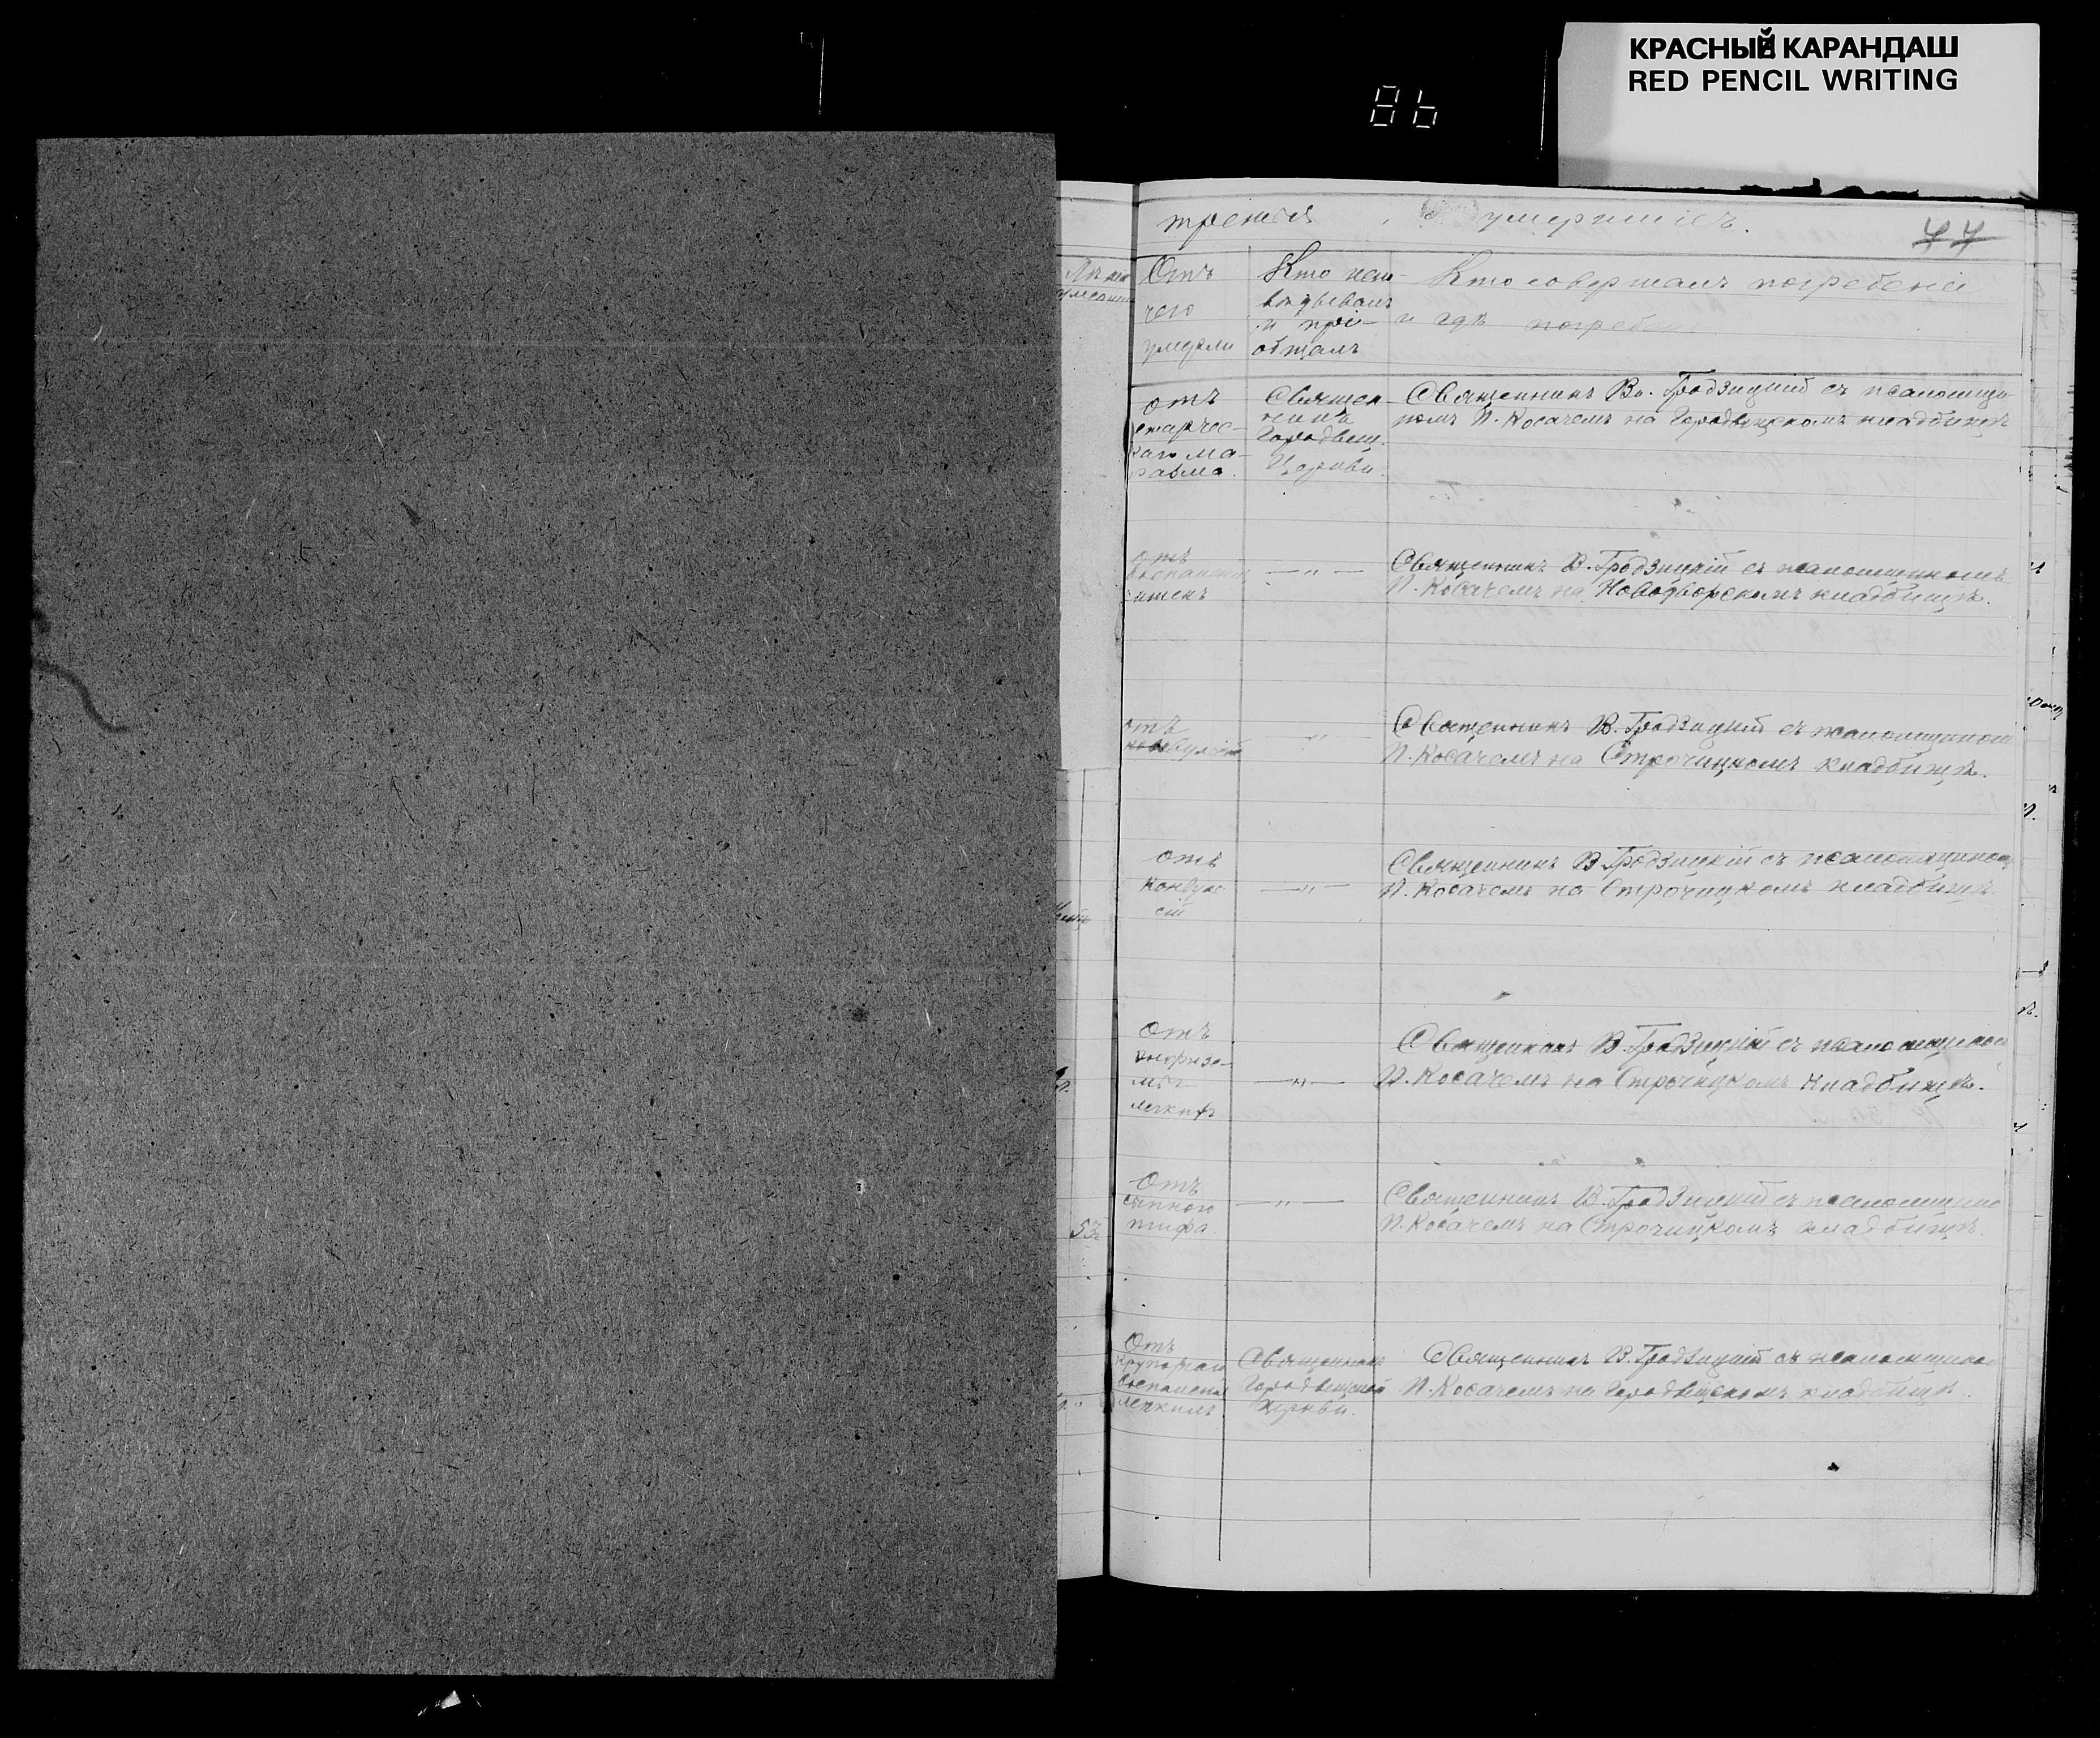 КРАСНЫЙ КАРАНДАШ
RED PENCIL WRITING
86
третья о умершихъ.
77
Отъ
чего
умерли
Кто испо-
вѣдывалъ
и прі-
общалъ
Кто совершалъ погребеніе
и гдѣ погребены
отъ
старчес-
каго ма-
разма.
Священ-
никъ
Городищ.
Церкви.
Священникъ Вл. Гродзицкій съ псаломщи-
комъ П. Косачемъ на Городищскомъ кладбищѣ
отъ
воспаленія
— „ —
Священникъ В. Гродзицкій съ псаломщикомъ
П. Косачемъ на Новодворскомъ кладбищѣ.
отъ
— „ —
Священникъ В. Гродзицкій съ псаломщикомъ
П. Косачемъ на Строчицкомъ кладбищѣ.
отъ
конвул
сій
— „ —
Священникъ В. Гродзицкій съ псаломщикомъ
П. Косачемъ на Строчицкомъ кладбищѣ
Отъ
легкихъ
— „ —
Священникъ В. Гродзицкій съ псаломщикомъ
П. Косачемъ на Строчицкомъ кладбищѣ.
Отъ
сыпного
тифа
— „ —
Священникъ В. Гродзицкій съ псаломщико
П. Косачемъ на Строчицкомъ кладбищѣ.
53
Отъ
крупознаго
воспаленія
легкихъ
Священникъ
Городищской
церкви.
Священникъ В. Гродзицкій съ псаломщико
П. Косачемъ на Городищскомъ кладбищѣ.